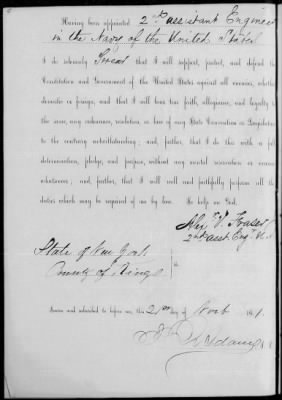 Having been appointed 2nd assistant Engineer
in the Navy of the United States
I do solemnly Swear that I will support, protect, and defend the
Constitution and Government of the United States against all enemies, whether
domestic or foreign, and that I will bear true faith, allegiance, and loyalty to
the same, any ordinance, resolution or law of any State Convention or Legislature
to the contrary notwithstanding; and, further, that I do this with a full
determination, pledge, and purpose, without any mental reservation or evasion
whatsoever; and, further, that I will well and faithfully perform all the
duties which may be required of me by law. So help me God.
V. Fraser
2nd asst. Eng.
State of New York
County of Kings
Sworn and subscribed to before me, this 21st day of 186